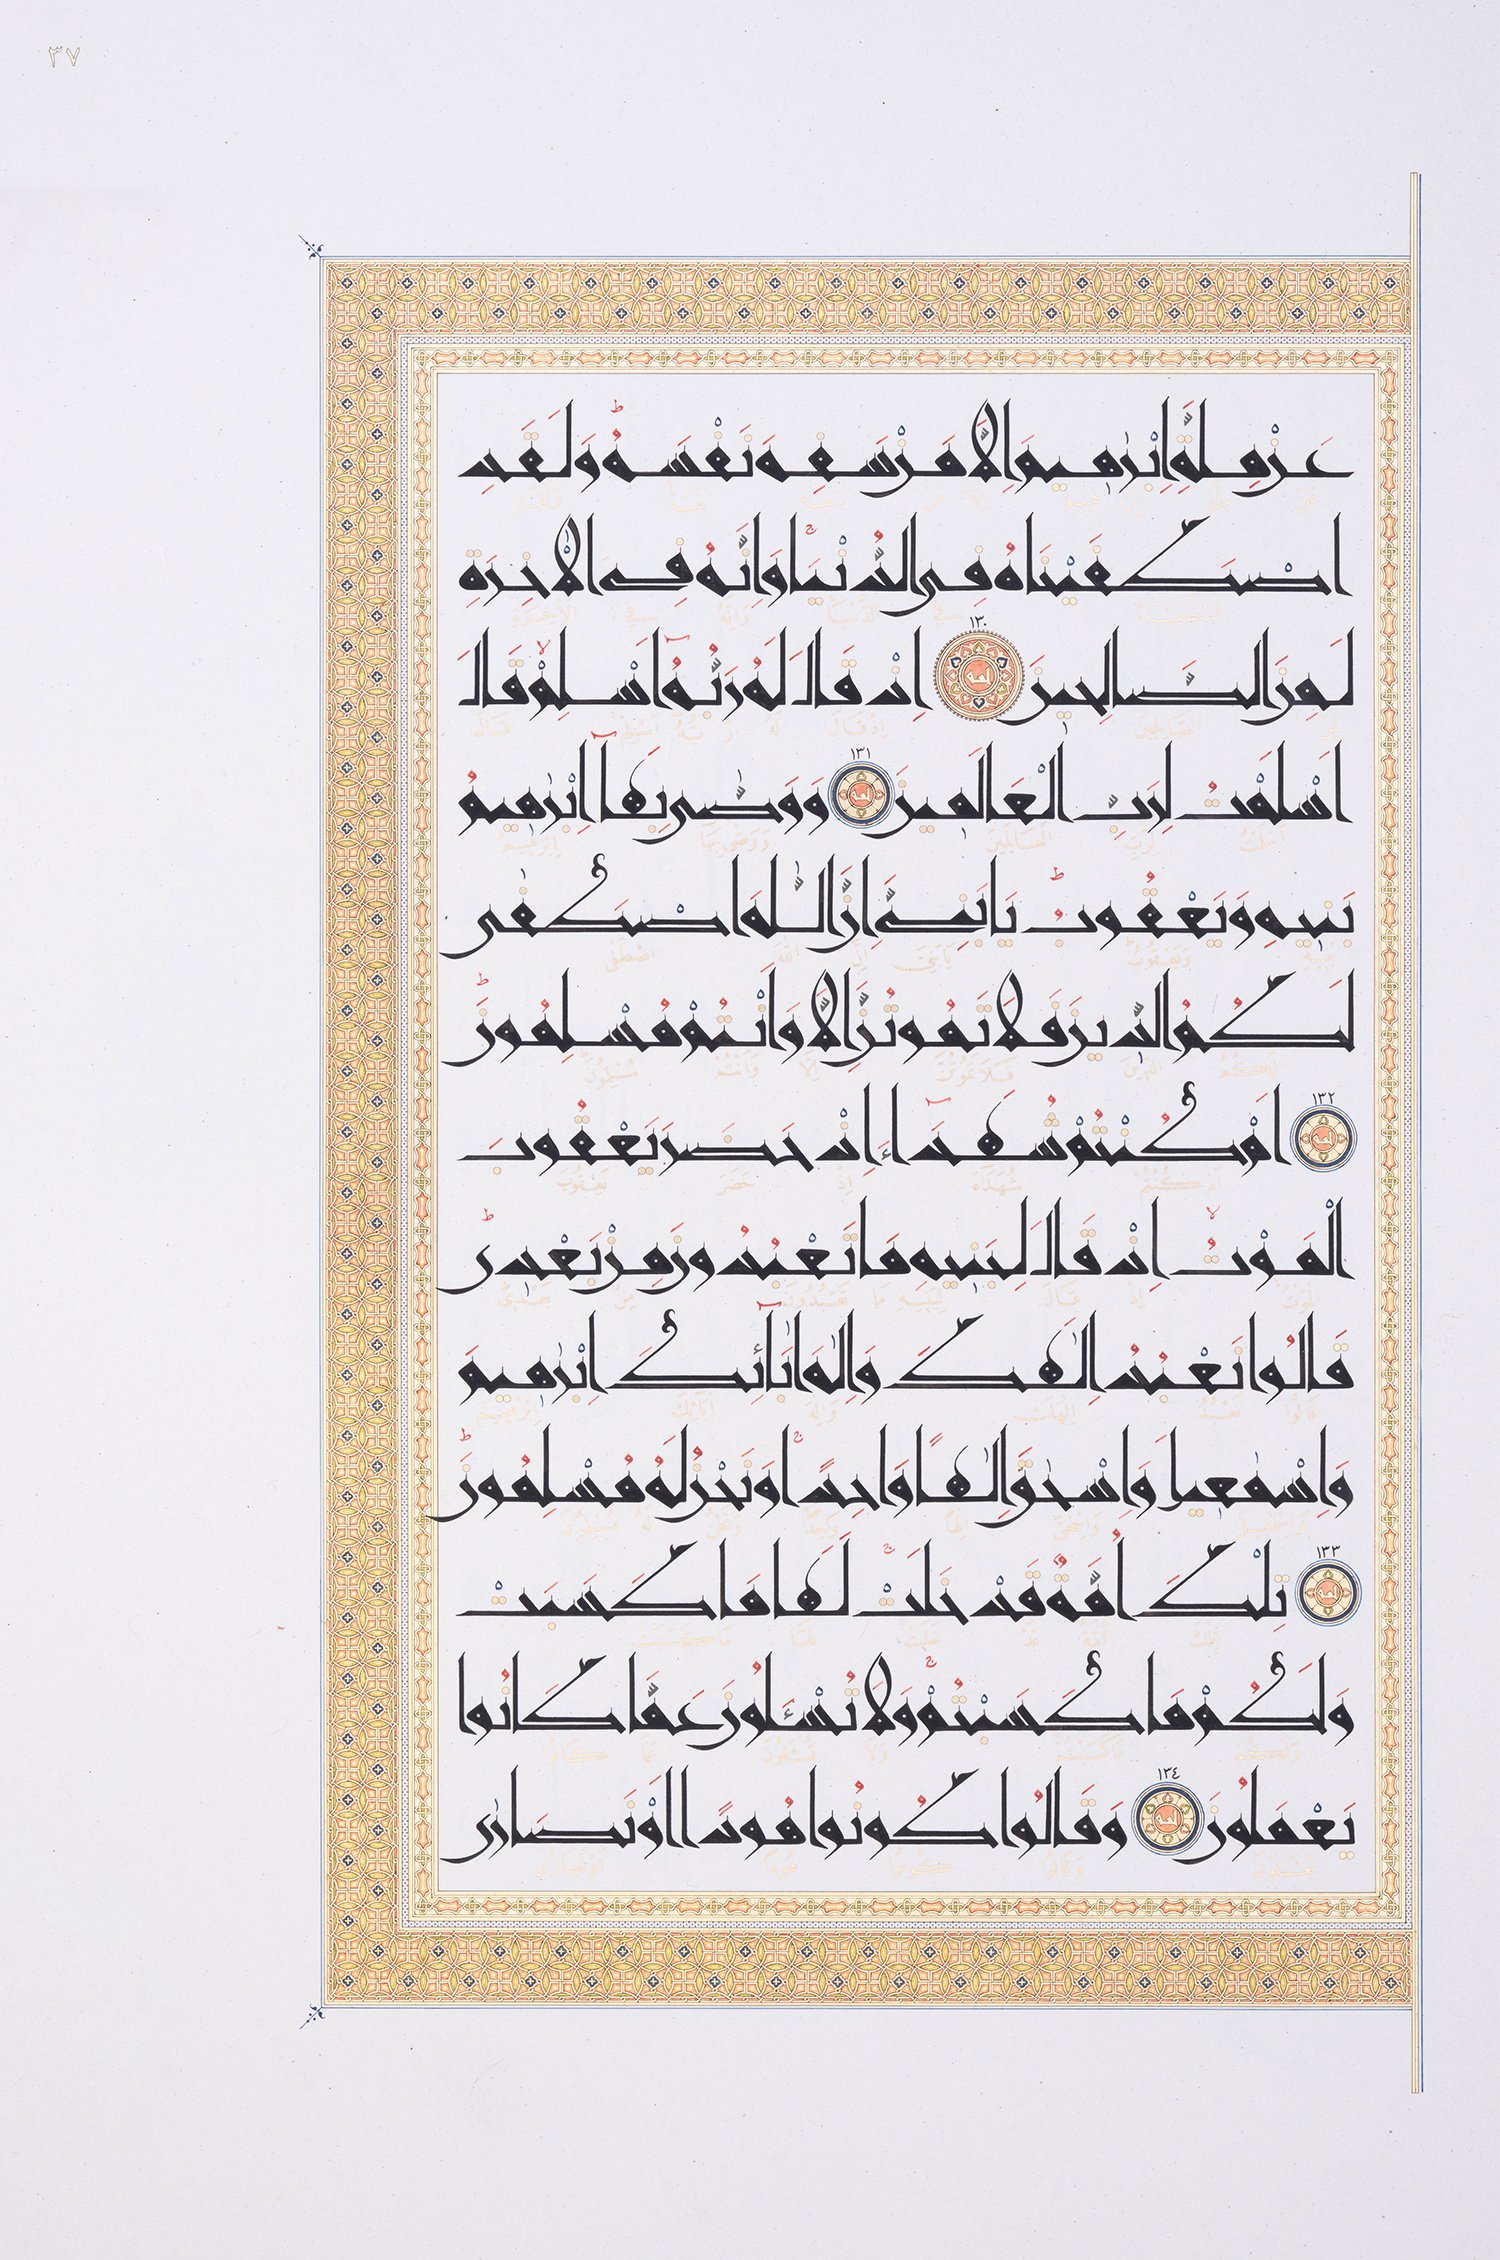 ٣٧
عَنْ مِلَّةِ إِبْرٰهِيمَ إِلَّا مَنْ سَفِهَ نَفْسَهُ وَلَقَدِ
اصْطَفَيْنَاهُ فِي الدُّنْيَا وَإِنَّهُ فِي الْآخِرَةِ
لَمِنَ الصَّالِحِينَ ١٣٠ إِذْ قَالَ لَهُ رَبُّهُ أَسْلِمْ قَالَ
أَسْلَمْتُ لِرَبِّ الْعَالَمِينَ ١٣١ وَوَصَّى بِهَا إِبْرٰهِيمُ
بَنِيهِ وَيَعْقُوبُ يَا بَنِيَّ إِنَّ اللَّهَ اصْطَفَى
لَكُمُ الدِّينَ فَلَا تَمُوتُنَّ إِلَّا وَأَنْتُمْ مُسْلِمُونَ
١٣٢ أَمْ كُنْتُمْ شُهَدَاءَ إِذْ حَضَرَ يَعْقُوبَ
الْمَوْتُ إِذْ قَالَ لِبَنِيهِ مَا تَعْبُدُونَ مِنْ بَعْدِي
قَالُوا نَعْبُدُ إِلٰهَكَ وَإِلٰهَ آبَائِكَ إِبْرٰهِيمَ
وَإِسْمٰعِيلَ وَإِسْحٰقَ إِلٰهًا وَاحِدًا وَنَحْنُ لَهُ مُسْلِمُونَ
١٣٣ تِلْكَ أُمَّةٌ قَدْ خَلَتْ لَهَا مَا كَسَبَتْ
وَلَكُمْ مَا كَسَبْتُمْ وَلَا تُسْـَٔلُونَ عَمَّا كَانُوا
يَعْمَلُونَ ١٣٤ وَقَالُوا كُونُوا هُودًا أَوْ نَصَارَى